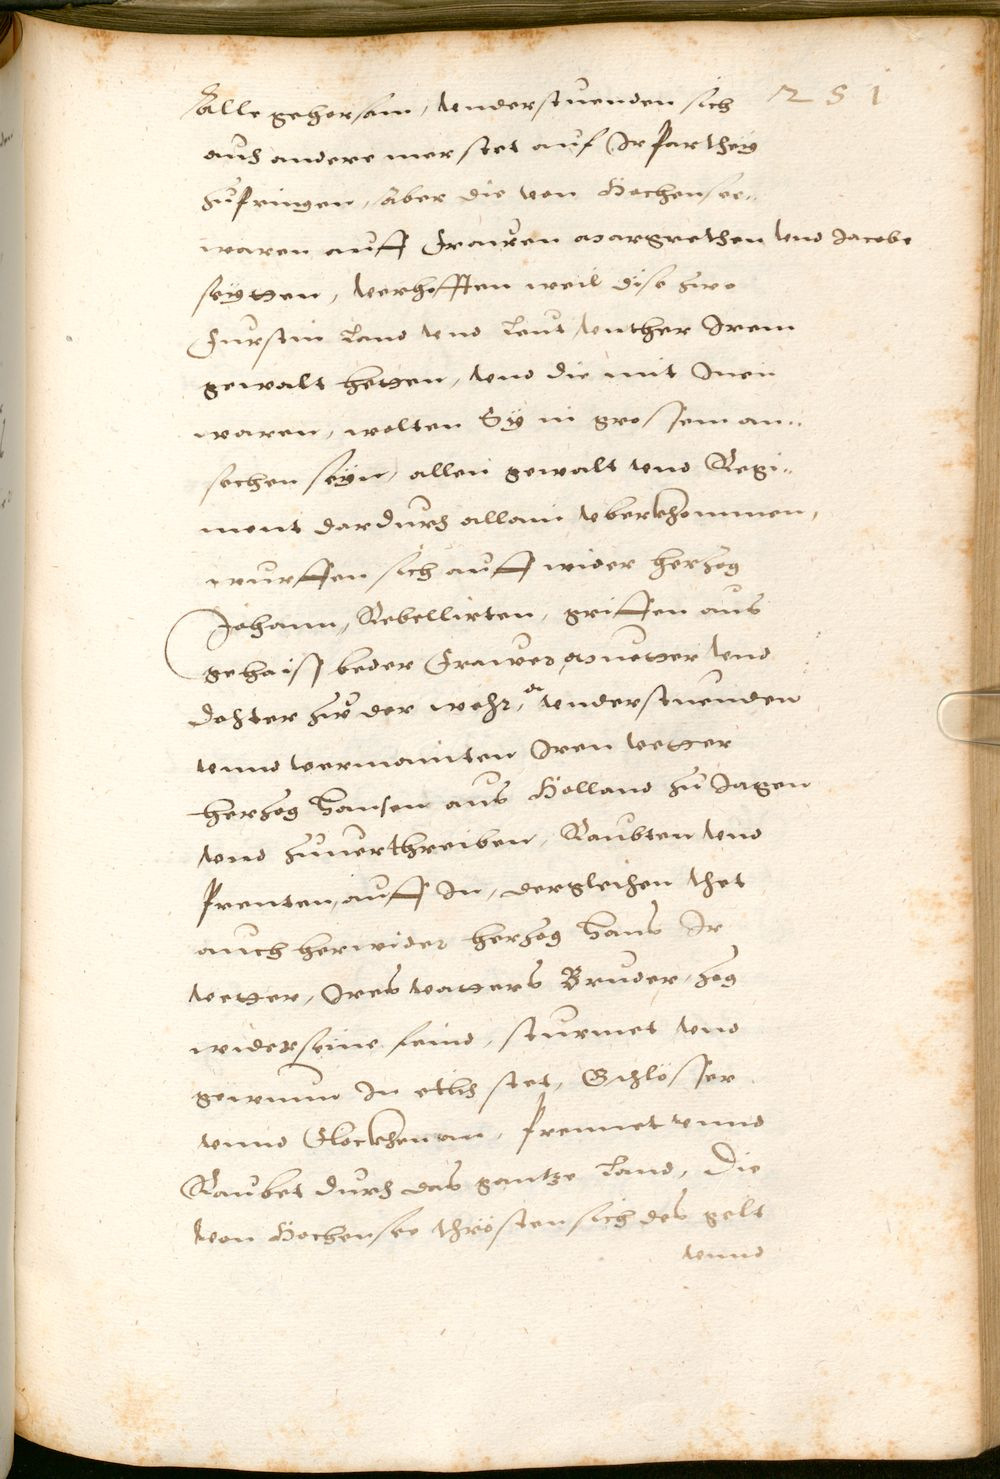 251
alle gehorsam, vnderstuenden sich
auch andere mer stet auf Ir Parthey
zu pringen, aber die von Hochensee„
waren auff Frauen Margrethen vnd Jacobe
seytten, verhofften weil dise zwo
Furstin Land vnd Leut vnther Irem
gewalt hetten, vnd die mit Inen
waren, wolten Sy in grossem an„
sechen seyn, allen gewalt vnd Regi„
ment dardurch allain vberkhommen,
wurffen sich auff wider herzog
Johann, Rebellirten, griffen aus
gehaiß beder Frawen Muetter vnd
dohter zu der wehr, vnderstuenden
vnnd vermainten Iren vetter
herzog Hansen aus Holland zu Jagen
vnd zuuerthreiben, Raubten vnd
prenten, auff In, dergleichen thet
auch herwider herzog Hans Ir
vetter, Ires vatters Bruder, zog
wider seine feind, sturmet vnd
gewunn In etlich stet, Schlösser
vnnd Flockhen an, prennet vnnd
Raubet durch das gantze Land, Die
von Hochensee thrösten sich des gelt
vnnd